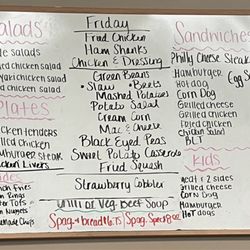 Salads
de Salads
ed chicken salad
yaki chicken salad
ed chicken salad
Plates
cken tenders
lled chicken
mburger steak
cken Livers
des
nch Fries
n Rings
ter Tots
n Nuggets
made Chips
Friday
Fried Chicken
Ham Shanks
Chicken & Dressing
Green Beans
• Slaw • Beets
Mashed Potatoes
Potato Salad
Cream Corn
Mac & Cheese
Black Eyed Peas
Sweet Potato Casserole
Fried Squash
Strawberry Cobbler
Chili or Veg. Beef Soup
Sandwiches
Philly Cheese Steak
Hamburger
Hot dog
Corn Dog
Grilled cheese
Grilled chicken
Fried chicken
Chicken Salad
BLT
Egg S
Kids
meat & 2 sides
Grilled cheese
Corn Dog
Hamburger
Hot dogs